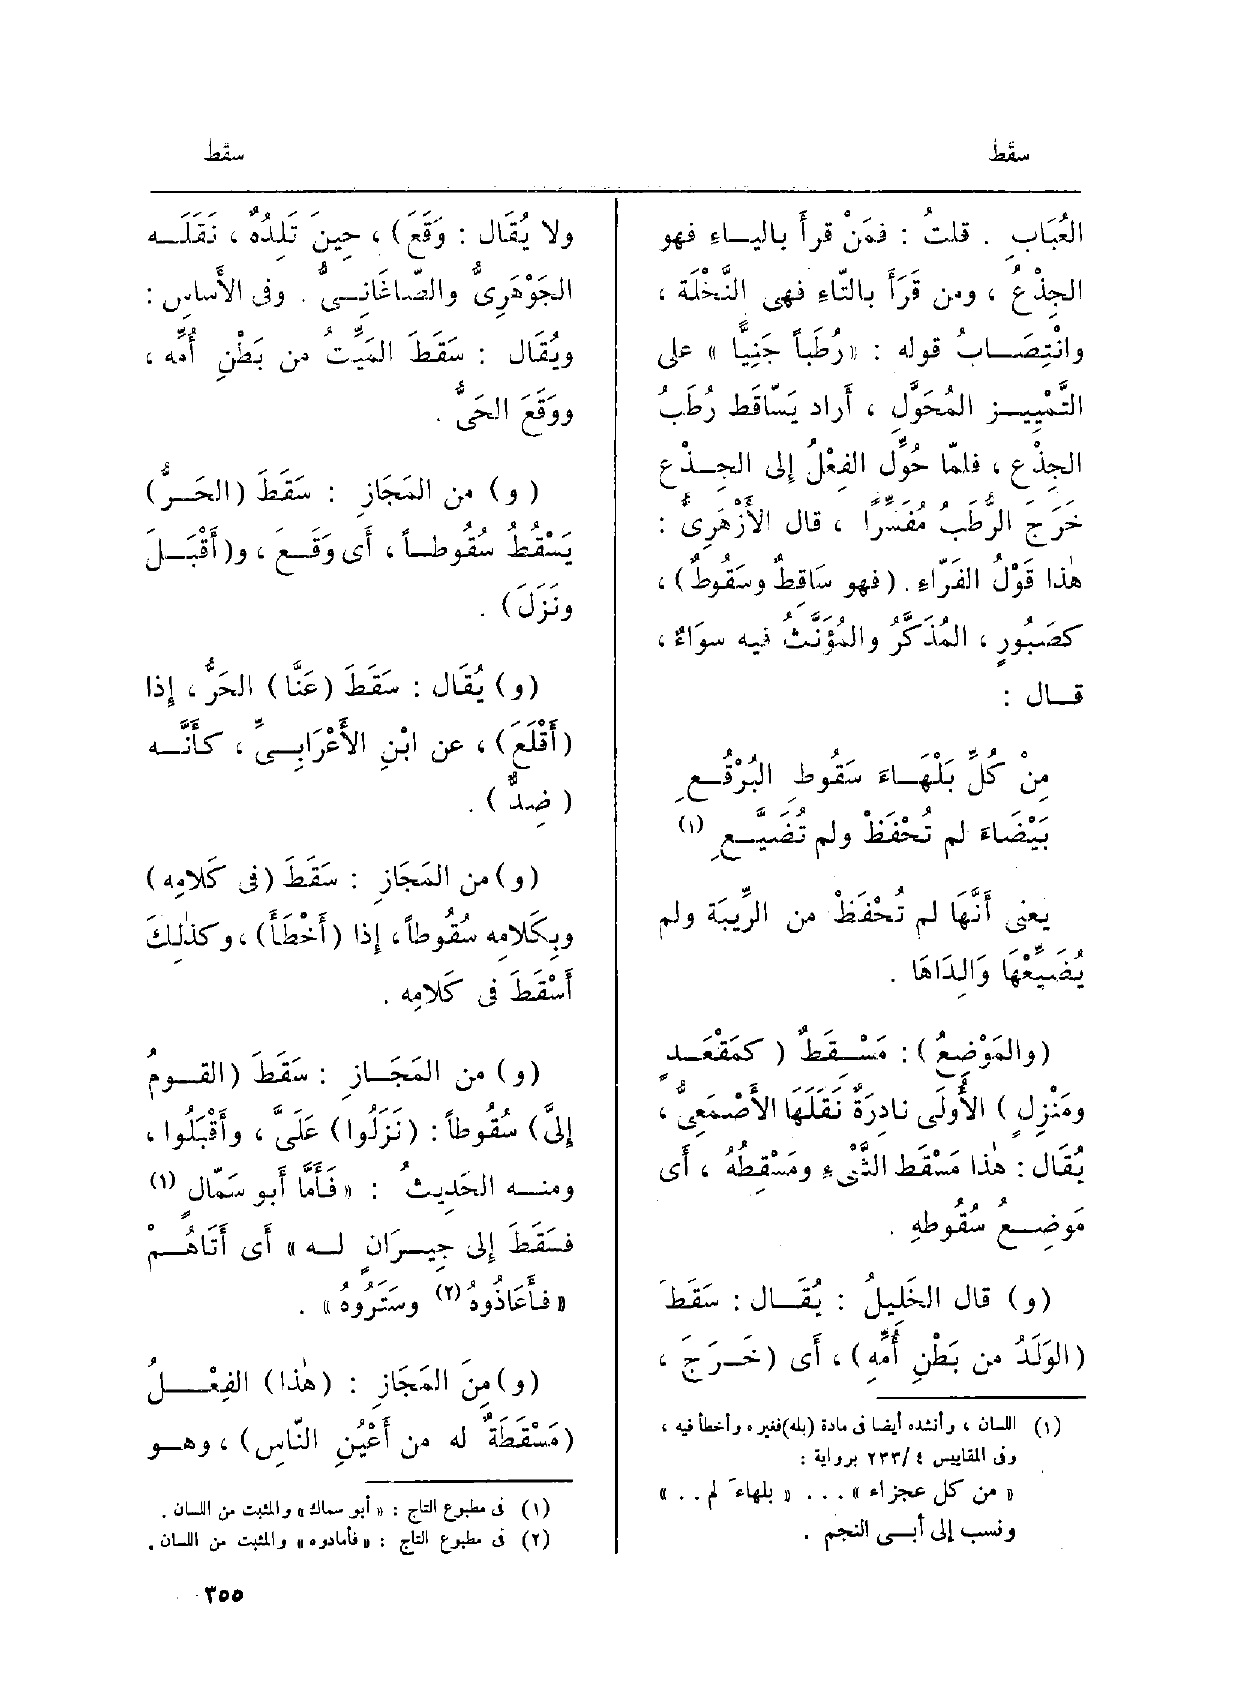 سقط
سقط
العُبَابِ . قلتُ : فمَنْ قرأَ باليـاءِ فهو
الجِذْعُ ، ومن قَرَأَ بالتَّاءِ فهى النَّخْلَة ،
وانْتِصَـابُ قوله : «رُطَباً جَنِيًّا » على
التَّمْيِيـزِ المُحَوَّلِ ، أَراد يَسّاقَط رُطَبُ
الجِذْعِ ، فلمّا حُوِّل الفِعْلُ إلى الجِـذْعِ
خَرَجَ الرُّطَبُ مُفَسِّرًا ، قال الأَزْهَرِىُّ :
هٰذا قَوْلُ الفَرّاءِ . (فهو سَاقِطٌ وسَقُوطٌ) ،
كصَبُورٍ ، المُذَكَّرُ والمُؤَنَّثُ فيه سوَاءٌ ،
قـال :
مِنْ كُلِّ بَلْهَـاءَ سَقُوطِ البُرْقُـعِ
بَيْضَاءَ لم تُحْفَظْ ولم تُضَيَّـعِ (١)
يعنى أَنَّهَا لم تُحْفَظْ من الرِّيبَة ولم
يُضَيِّعْهَا وَالِدَاهَا .
(والمَوْضِعُ) : مَسْـقِطٌ ( كمَقْعَـدٍ
ومَنْزِلٍ ) الأُولَى نادِرَةٌ نَقَلَهَا الأَصْمَعِىُّ ،
يُقَال : هٰذا مَسْقَط الشَّىْءِ ومَسْقِطُهُ ، أَى
مَوضِـعُ سُقُوطِهِ .
(و) قال الخَلِيلُ : يُقَـال : سَقَطَ
(الوَلَدُ من بَطْنِ أُمِّهِ) ، أَى (خَـرَجَ ،
(١) اللسان ، وأنشده أيضا فى مادة (بله)فغيره وأخطأ فيه ،
وفى المقاييس ٤ /٢٣٣ برواية :
« من كل عجزاء » . . . « بلهاءَ لم . . »
ونسب إلى أبـى النجم .
ولا يُقَال : وَقَعَ) ، حِينَ تَلِدُهُ ، نَقَلَـه
الجَوْهَرِىُّ والصّاغَانِـىُّ . وفى الأَساسِ :
ويُقَال : سَقَطَ المَيِّتُ من بَطْنِ أُمِّه ،
ووَقَعَ الحَىُّ .
( و) من المَجَازِ : سَقَطَ (الحَـرُّ)
يَسْقُطُ سُقُوطـاً ، أَى وَقَـعَ ، و(أَقْبَـلَ
ونَزَلَ) .
(و) يُقَال : سَقَطَ (عَنَّا) الحَرُّ ، إذا
(أَقْلَعَ) ، عن ابْنِ الأَعْرَابِـىِّ ، كأَنَّـه
( ضِدٌّ ) .
(و) من المَجَازِ : سَقَطَ (فى كَلامِه)
وبِكَلامِه سُقُوطاً ، إذا (أَخْطَأَ) ، وكذٰلِكَ
أَسْقَطَ فى كَلامِه .
(و) من المَجَـازِ : سَقَطَ (القَـومُ
إلىَّ) سُقُوطاً : (نَزَلُوا) عَلَىَّ ، وأَقْبَلُوا ،
ومنـه الحَدِيثُ : « فَأَمَّا أَبو سَمّالٍ (١)
فسَقَطَ إلى جِيـرَانٍ لـه » أَى أَتَاهُـمْ
« فأَعَاذُوهُ (٢) وسَتَرُوهُ » .
(و)مِنَ المَجَازِ : (هٰذا) الفِعْـلُ
(مَسْقَطَةٌ له من أَعْيُنِ النّاسِ) ، وهـو
(١) فى مطبوع التاج : « أبو سماك » والمثبت من اللسان .
(٢) فى مطبوع التاج : « فأمادوه » والمثبت من اللسان .
٣٥٥